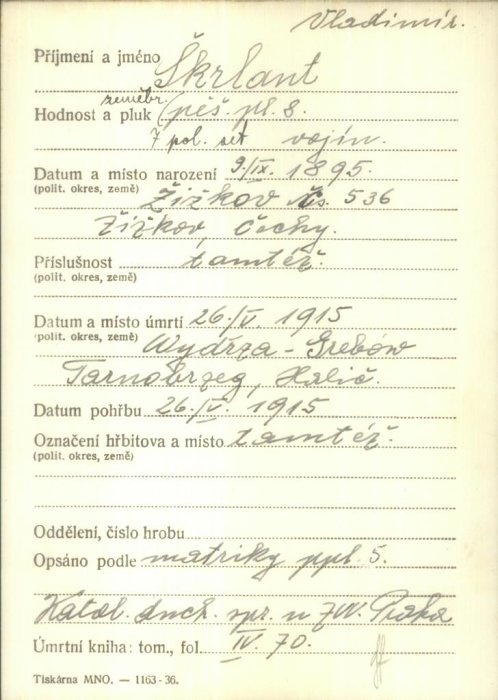 Vladimír.
Příjmení a jméno Škrlant
Hodnost a pluk zeměbr. pěš. pl. 8.
7 pol. set vojín.
Datum a místo narození 9./IX. 1895.
(polit. okres, země) Žižkov čís. 536
Žižkov, Čechy.
Příslušnost tamtéž.
(polit. okres, země)
Datum a místo úmrtí 26./V. 1915
(polit. okres, země) Wydrza - Grebów
Tarnobrzeg, Halič.
Datum pohřbu 26./V. 1915
Označení hřbitova a místo tamtéž.
(polit. okres, země)
Oddělení, číslo hrobu
Opsáno podle matriky ppl. 5.
Katol. duch. spr. u ZVV. Praha
Úmrtní kniha: tom., fol. IV. 70.
Tiskárna MNO. — 1163-36.